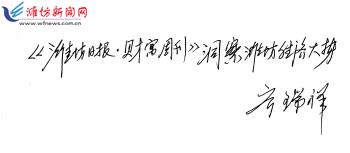 潍坊新闻网
www.wfnews.com.cn
《潍坊日报·财富周刊》洞察潍坊经济大势
宫瑞祥